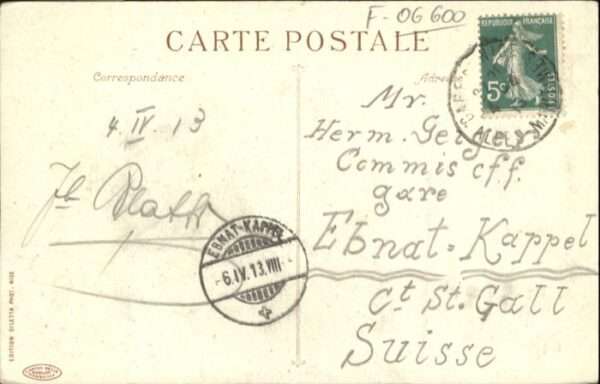 F-06600
CARTE POSTALE
Correspondance
REPUBLIQUE FRANÇAISE
5c
POSTES
4.IV.13
Mr.
Herm. Geiger
Commis cff.
gare
Ebnat-Kappel
Ct St. Gall
Suisse
EBNAT-KAPPEL
-6.IV.13.VIII-
EDITION GILETTA PHOT. NICE